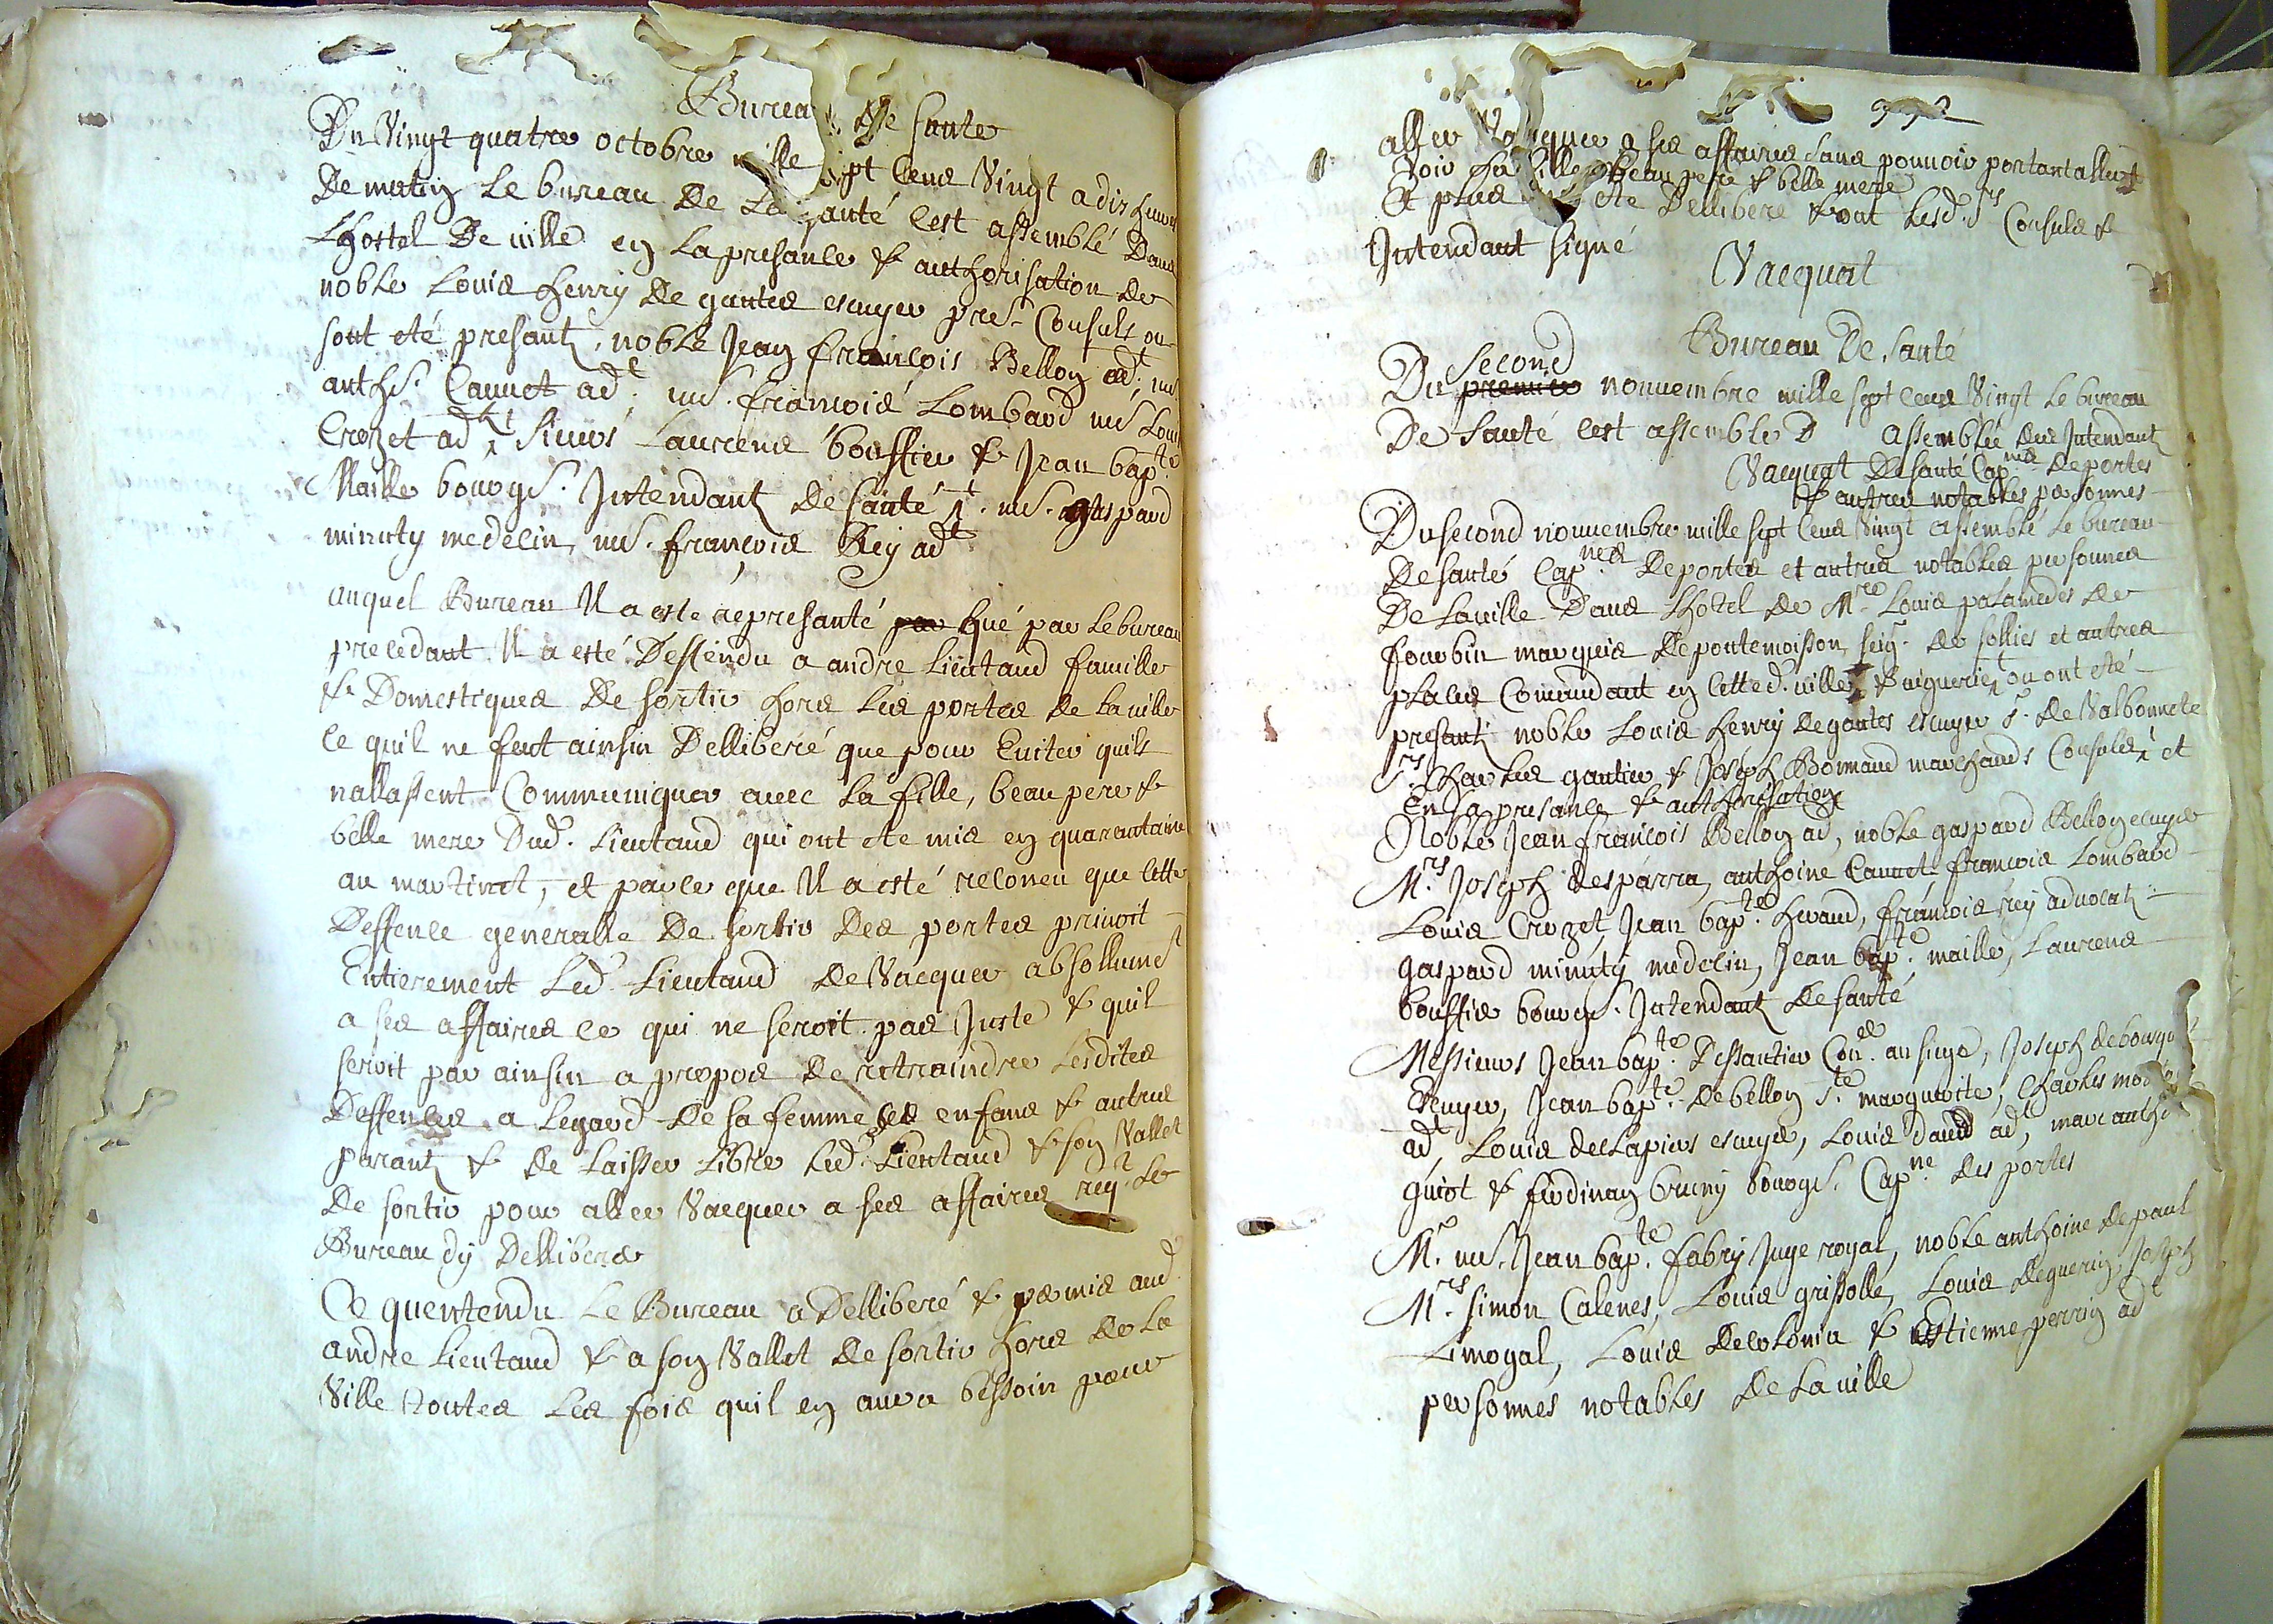 Bureau de sante
Du Vingt quatre octobre mille sept Cens Vingt a dix heures
De matin Le bureau De La santé Cest assemblé Dans
Lhostel De ville en La presance & authorisation de
noble Louis henry De gantes escuyer pre.r Consuls ou
sont eté presants, noble Jean francois Bellon ad.t me.
anth.e Cannet ad.t me. francois Lombard me Louis
Crozet ad.t sieurs Laurens bouffier & Jean bap.te
Maille bourgs. Intendants De santé me. gaspard
minuty medecin, me. francois Rey ad.t
auquel Bureau Il a este represanté par que par Le bureau
precedant Il a esté Deffendu a andre Lieutaud famille
& Domestiques De sortir hors Les portes De la ville
ce quil ne feut ainsin Delliberé que pour Eviter quils
nallassent Communiquer avec La fille, beau pere &
belle mere Dud. Lieutaud qui ont ete mis en quarantaine
au martinet, et parce que Il a esté reconeu que cette
Deffence generalle De sortir Des portes privoit
Entierement Led. Lieutaud De Vacquer absollumet
a ses affaires ce qui ne seroit pas Juste & quil
seroit par ainsin a propos De retraindre Lesdites
Deffences a Legard De sa femme ses enfans & autres
parants & De Laisser Libre Led. Lieutaud & son Vallet
De sortir pour aller Vacquer a ses affaires req.t Le
Bureau dy Delliberer
Ce quentendu Le Bureau a Delliberé & permis aud.
andre Lieutaud & a son Vallet De sortir hors De La
Ville Toutes Les fois quil en aura bessoin pour
992
aller Vacquer a ses affaires sans pouvoir portant aller
Voir sa fille beau pere & belle mere
Et plus ete Dellibere & ont Lesd. srs Consuls &
Intendant signé
Vacquat
Bureau De santé
Second
Du premier nouvembre mille sept cens Vingt Le bureau
De Santé cest assemble D Assemblée des Intendants
Vacquat De santé Cap.nes De portes
& autres notables personnes
Du second nouvembre mille sept Cens Vingt assemblé Le bureau
De santé Cap.nes De portes et autres notables personnes
De La ville Dans Lhotel De M.re Louis palamedes De
fourbin marquis De pontemoisson, seig.r De sollies et autres
places Comandant en Cette d. ville & viguerie, ou ont eté
presants noble Louis henry De gantes escuyer s.r De Valbonnete
S.rs Charles gautier & Joseph Bormand marchands Consuls, et
En sa presance & authorisation
Noble Jean francois Bellon ad, noble gaspard Bellon ecuyer
M.rs Joseph desparra, anthoine Cannet francois Lombard
Louis Crozet Jean bap.te heraud, francois rey advocats
gaspard minuty medecin, Jean bap.te maille, Laurens
bouffier bourgs. Intendants De santé
Messieurs Jean bap.te Dessantier Con.er au siege, Joseph de bourg
Ecuyer, Jean bap.te De bellon s.te marguerite, Charles
ad.t Louis des Lapiers escuyer, Louis daud ad.t, marc anth
guiot & ferdinan bruny bourgs. Cap.ne des portes
M.r me. Jean bap.te fabry Juge royal, noble anthoine De paul
M.rs simon Calenes, Louis grissolle, Louis Deguerin, Joseph
Limogal, Louis De colonia & estienne perrin ad.t
personnes notables De La ville